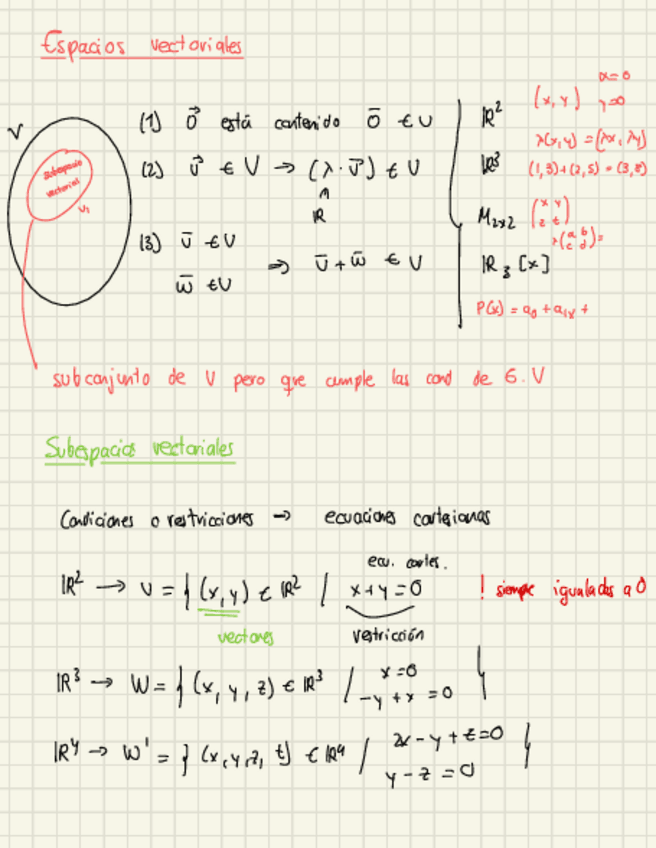 Espacios vectoriales
V
Subespacio
vectorial
U₁
(1) 0⃗ está contenido 0̄ ∈ U
(2) v⃗ ∈ V → (λ · v⃗) ∈ U
∩
ℝ
(3) ū ∈ U
w̄ ∈ U
⇒ ū + w̄ ∈ U
ℝ² (x, y) x=0
y=0
λ(x,y) = (λx, λy)
ℝ³ (1,3)+(2,5) = (3,8)
M₂ₓ₂ (x y
z t)
λ(a b
c d) =
ℝ₃ [x]
P(x) = a₀ + a₁x +
subconjunto de V pero que cumple las cond de E.V
Subespacios vectoriales
Condiciones o restricciones → ecuaciones cartesianas
ecu. cartes.
ℝ² → U = { (x,y) ∈ ℝ² / x+y=0 ! siempre igualadas a 0
vectores restricción
ℝ³ → W = { (x, y, z) ∈ ℝ³ / x=0
-y+x =0 }
ℝ⁴ → W' = } (x,y,z, t) ∈ ℝ⁴ / 2x-y+t=0
y-z=0 }